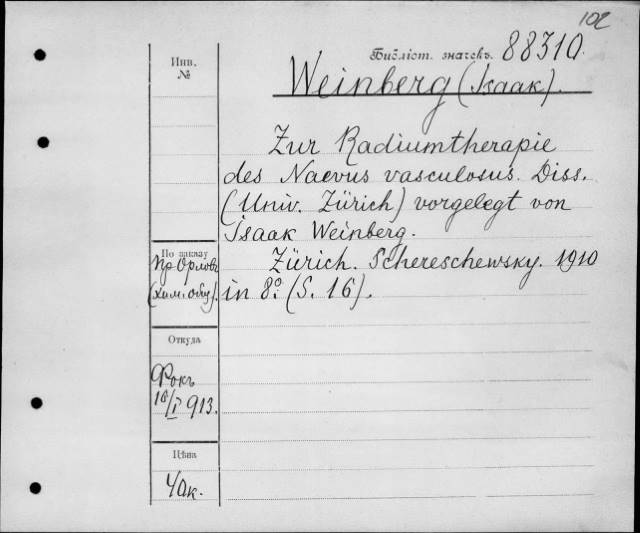 102
Инв.
№
Библіот. значекъ. 88310.
Weinberg (Isaak).
Zur Radiumtherapie
des Naevus vasculosus. Diss.
(Univ. Zürich) vorgelegt von
Isaak Weinberg.
Zürich. Schereschewsky. 1910
in 8º. (S. 16).
По заказу
пр. Орловъ
(хим. общ.).
Откуда
Фокъ
18/I 913.
Цѣна
40к.